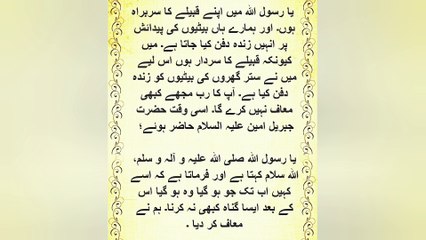 یا رسول اللہ میں اپنے قبیلے کا سربراہ
ہوں۔ اور ہمارے ہاں بیٹیوں کی پیدائش
پر انہیں زندہ دفن کیا جاتا ہے۔ میں
کیونکہ قبیلے کا سردار ہوں اس لیے
میں نے ستر گھروں کی بیٹیوں کو زندہ
دفن کیا ہے۔ آپ کا رب مجھے کبھی
معاف نہیں کرے گا۔ اسی وقت حضرت
جبریل امین علیہ السلام حاضر ہوئے؛
یا رسول اللہ صلی اللہ علیہ و آلہ و سلم،
اللہ سلام کہتا ہے اور فرماتا ہے کہ اسے
کہیں اب تک جو ہو گیا وہ ہو گیا اس
کے بعد ایسا گناہ کبھی نہ کرنا۔ ہم نے
معاف کر دیا .